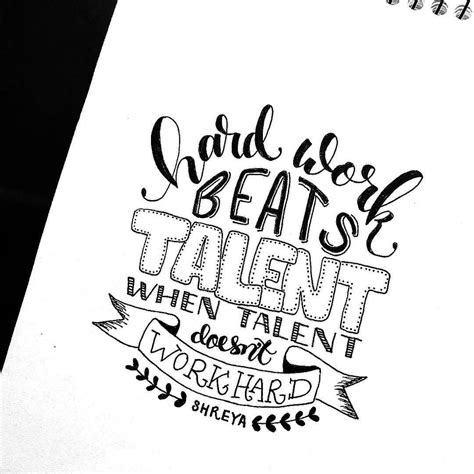 hard work
BEATS
TALENT
WHEN TALENT
doesn't
WORK HARD
SHREYA